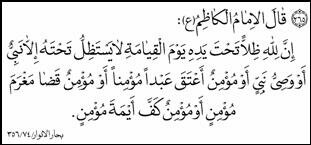 (٢٦٥) قَالَ الإِمَامُ الْكَاظِمُ (ع):
إِنَّ لِلّٰهِ ظِلاًّ تَحْتَ يَدِهِ يَوْمَ الْقِيَامَةِ لَا يَسْتَظِلُّ تَحْتَهُ إِلاَّ نَبِيٌّ
أَوْ وَصِيُّ نَبِيٍّ أَوْ مُؤْمِنٌ أَعْتَقَ عَبْداً مُؤْمِناً أَوْ مُؤْمِنٌ قَضَا مَغْرَمَ
مُؤْمِنٍ أَوْ مُؤْمِنٌ كَفَّ أَيْمَةَ مُؤْمِنٍ.
بحار الانوار/٣٥٦/٧٤